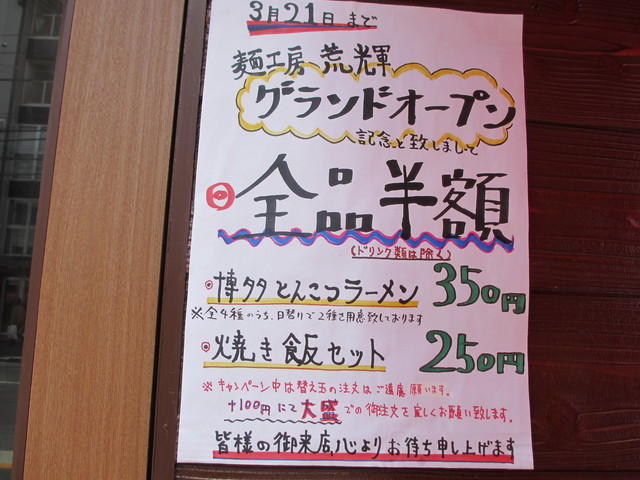 3月21日まで
麺工房 荒輝
グランドオープン
記念と致しまして
全品半額
(ドリンク類は除く)
博多とんこつラーメン 350円
※全4種のうち、日替りで2種ご用意致しております
焼き飯セット 250円
※キャンペーン中は替え玉の注文はご遠慮願います。
+100円にて大盛での御注文を宜しくお願い致します。
皆様の御来店、心よりお待ち申し上げます